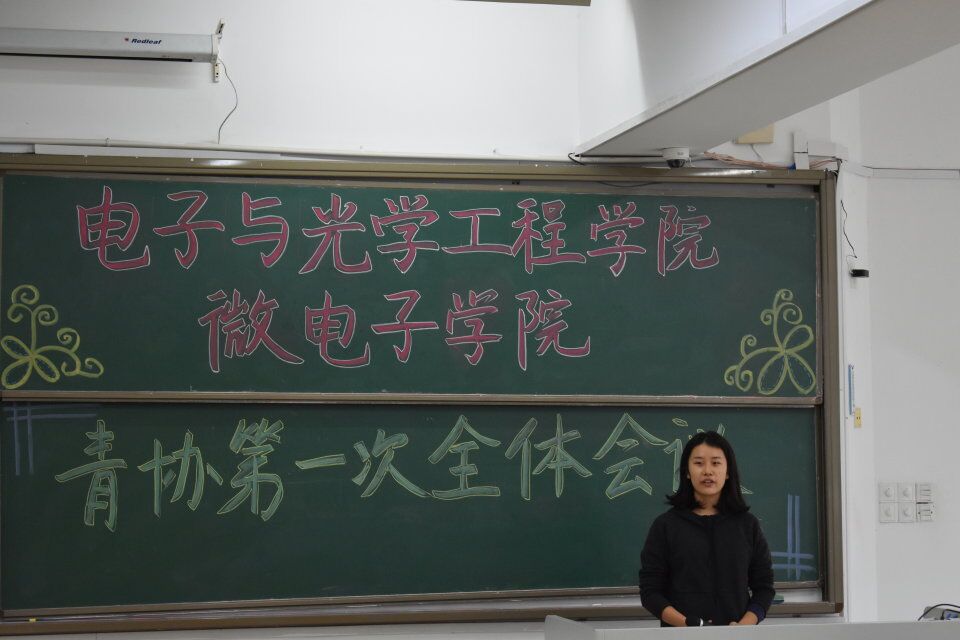 Redleaf
电子与光学工程学院
微电子学院
青协第一次全体会议